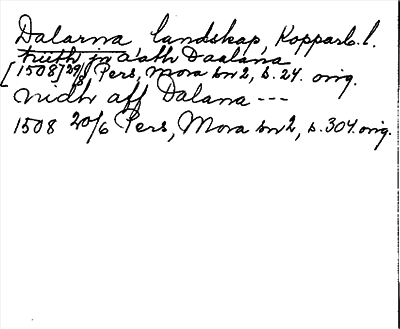 Dalarna, landskap, Kopparb. l.
truth ja aath Daalana
[1508] 29/8 Pers, Mora bn 2, s. 24. orig.
vidh aff Dalana ---
1508 20/6 Pers, Mora bn 2, s. 304. orig.